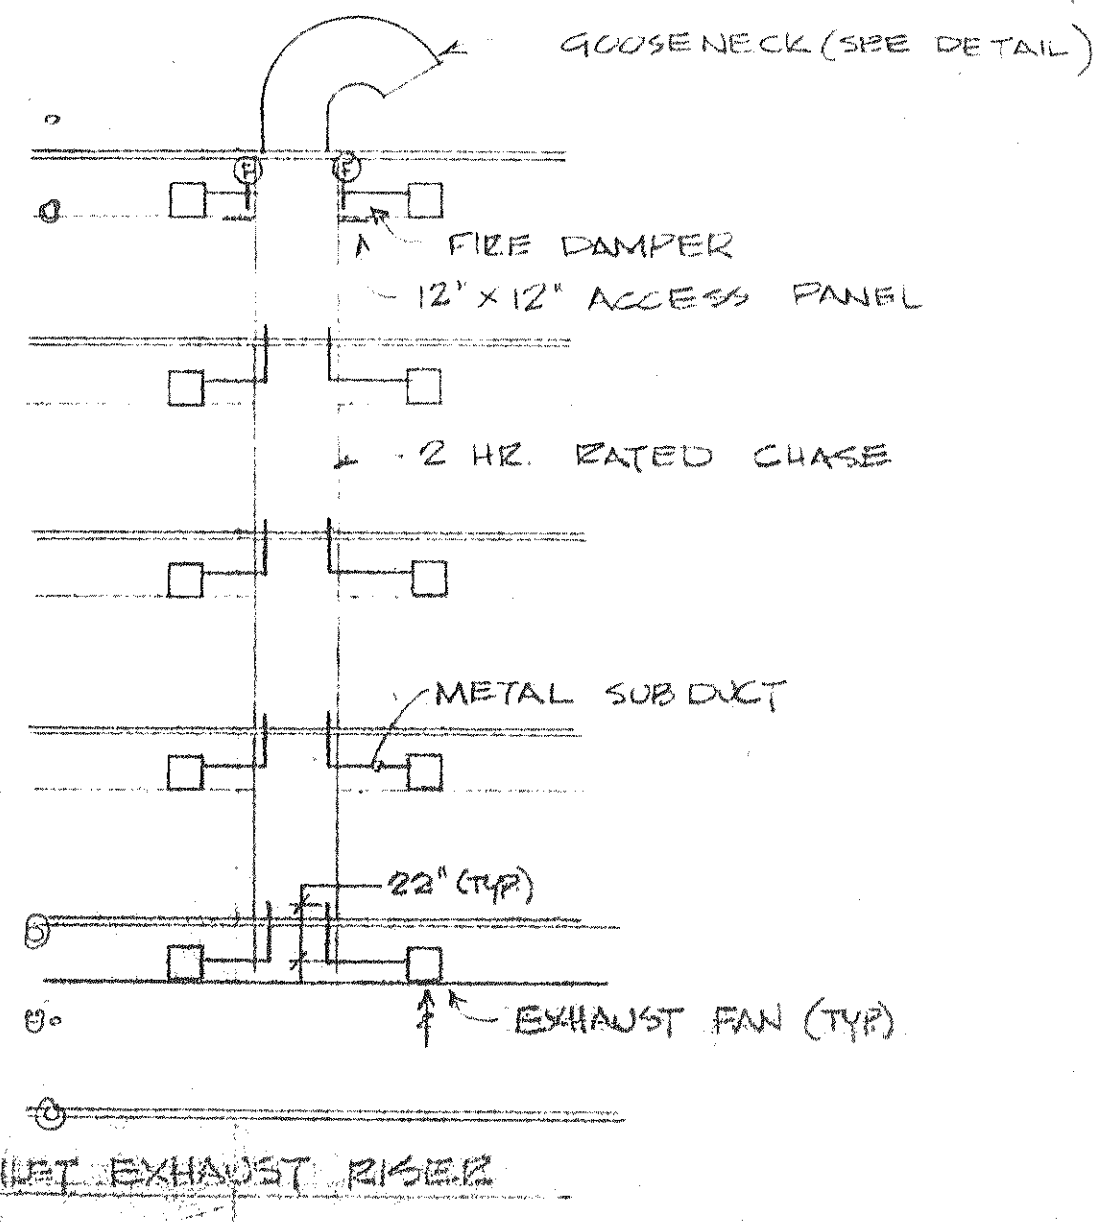 GOOSENECK (SEE DETAIL)
F F
FIRE DAMPER
12" x 12" ACCESS PANEL
2 HR. RATED CHASE
METAL SUB DUCT
22" (TYP.)
EXHAUST FAN (TYP.)
EXHAUST RISER